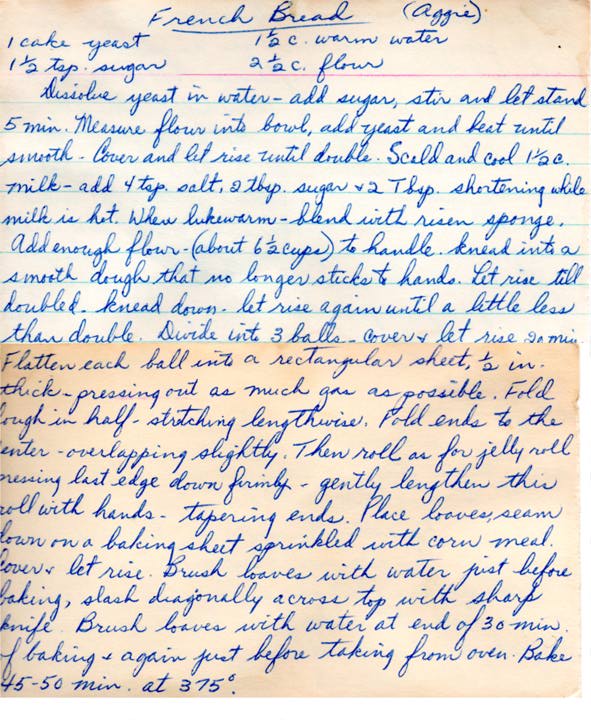 French Bread (Aggie)
1 cake yeast 1½ c. warm water
1½ tsp. sugar 2½ c. flour
Dissolve yeast in water - add sugar, stir and let stand
5 min. Measure flour into bowl, add yeast and beat until
smooth - Cover and let rise until double. Scald and cool 1½ c.
milk - add 4 tsp. salt, 2 tbsp. sugar & 2 Tbsp. shortening while
milk is hot. When lukewarm - blend with risen sponge.
Add enough flour - (about 6½ cups) to handle. knead into a
smooth dough that no longer sticks to hands. Let rise till
doubled. knead down - let rise again until a little less
than double. Divide into 3 balls - cover & let rise 20 min.
Flatten each ball into a rectangular sheet, ½ in.
thick - pressing out as much gas as possible. Fold
ough in half - stretching lengthwise. Fold ends to the
enter - overlapping slightly. Then roll as for jelly roll
ressing last edge down firmly - gently lengthen this
roll with hands - tapering ends. Place loaves, seam
down on a baking sheet sprinkled with corn meal.
Cover & let rise. Brush loaves with water just before
baking, slash diagonally across top with sharp
knife. Brush loaves with water at end of 30 min.
of baking & again just before taking from oven. Bake
45-50 min. at 375°.